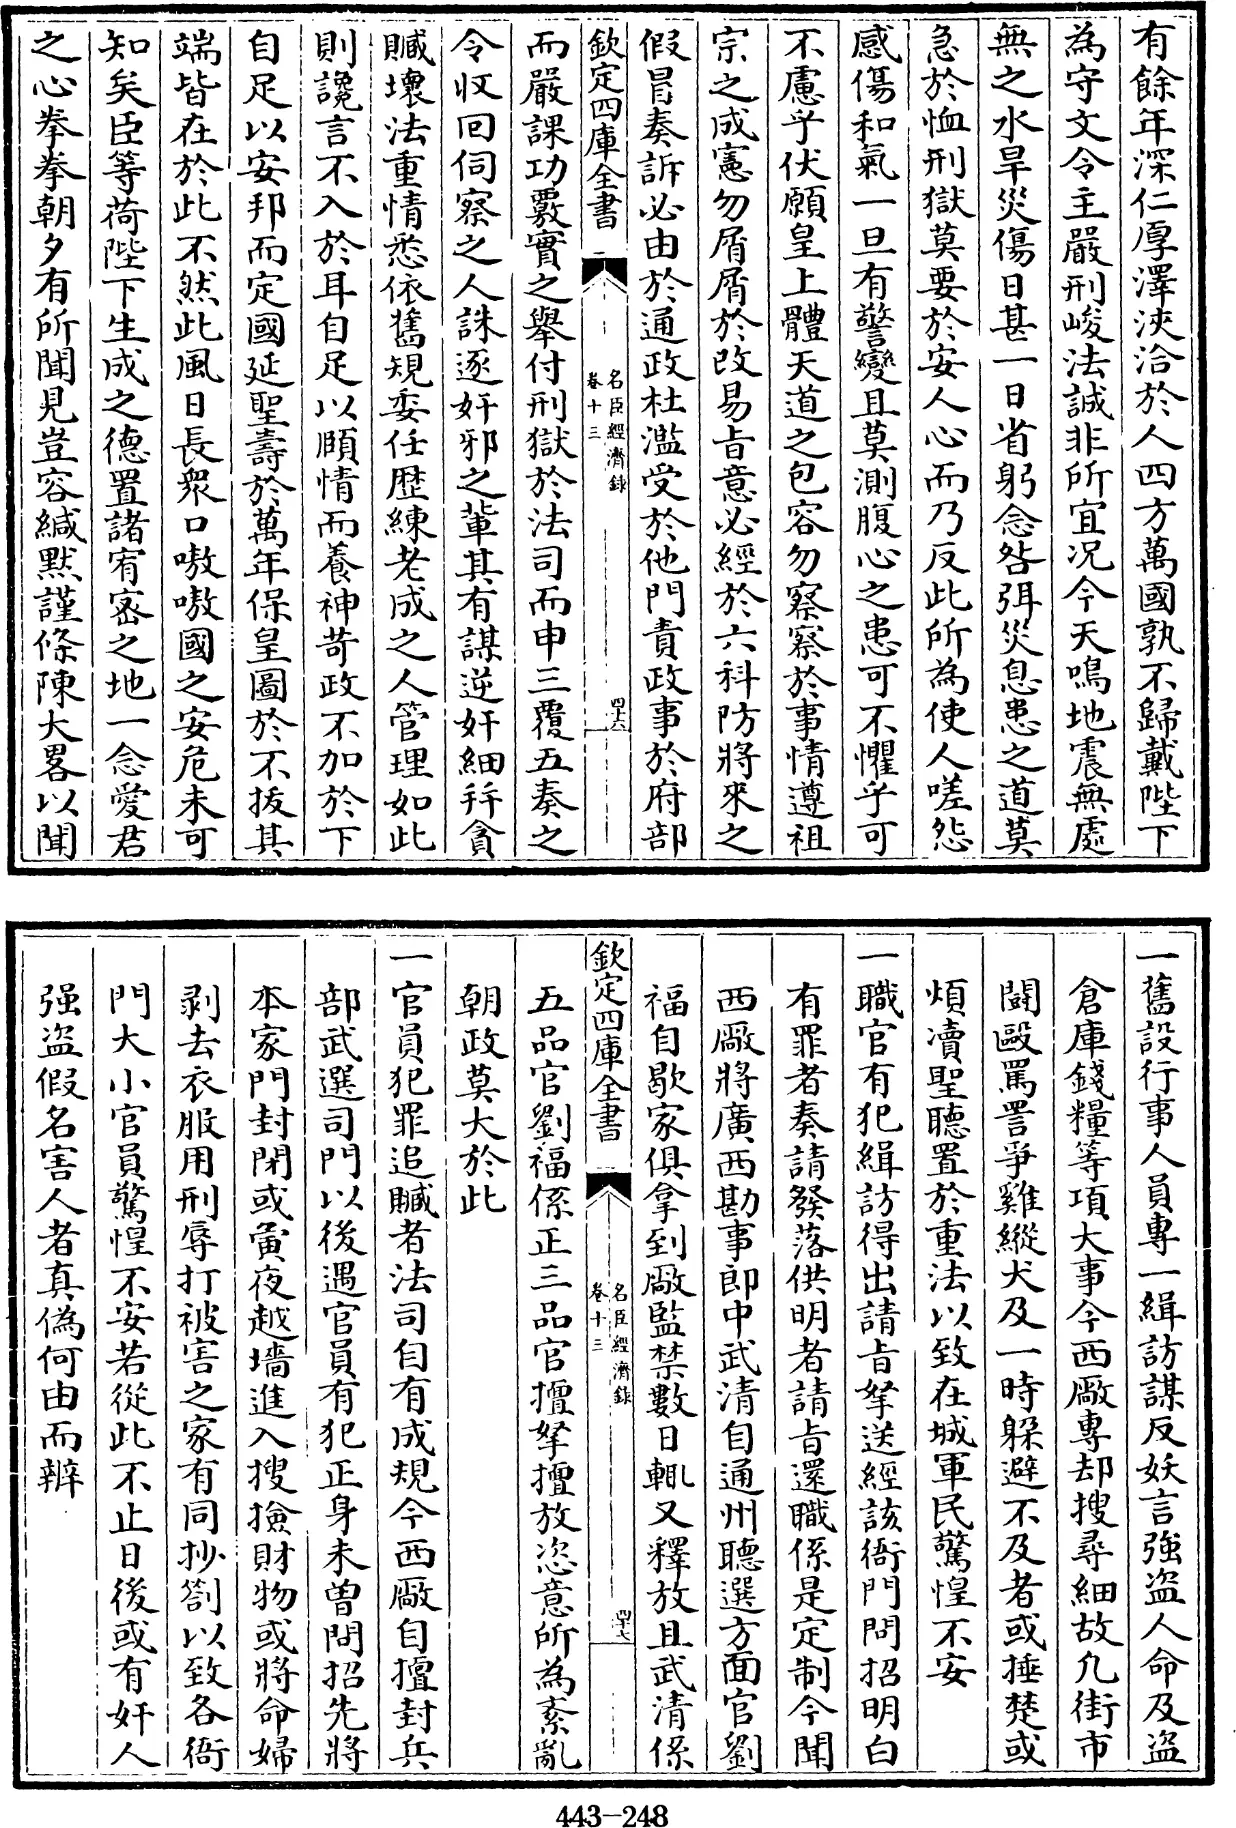 有餘年深仁厚澤浹洽於人四方萬國孰不歸戴陛下
為守文令主嚴刑峻法誠非所宜况今天鳴地震無處
無之水旱災傷日甚一日省躬念咎弭災息患之道莫
急於恤刑獄莫要於安人心而乃反此所為使人嗟怨
感傷和氣一旦有警變且莫測腹心之患可不懼乎可
不慮乎伏願皇上體天道之包容勿察察於事情遵祖
宗之成憲勿屑屑於改易旨意必經於六科防將來之
假冒奏訴必由於通政杜濫受於他門責政事於府部
欽定四庫全書
名臣經濟錄
卷十三
四十六
而嚴課功覈實之舉付刑獄於法司而申三覆五奏之
令收回伺察之人誅逐奸邪之輩其有謀逆奸細并貪
贓壞法重情悉依舊規委任歷練老成之人管理如此
則讒言不入於耳自足以頤情而養神苛政不加於下
自足以安邦而定國延聖壽於萬年保皇圖於不拔其
端皆在於此不然此風日長衆口嗷嗷國之安危未可
知矣臣等荷陛下生成之德置諸宥密之地一念愛君
之心拳拳朝夕有所聞見豈容緘默謹條陳大畧以聞
一舊設行事人員專一緝訪謀反妖言強盗人命及盗
倉庫錢糧等項大事今西厰專却搜尋細故凡街市
鬬毆罵詈爭雞縱犬及一時躱避不及者或捶楚或
煩瀆聖聽置於重法以致在城軍民驚惶不安
一職官有犯緝訪得出請旨拏送經該衙門問招明白
有罪者奏請發落供明者請旨還職係是定制今聞
西厰將廣西勘事郎中武清自通州聽選方面官劉
福自歇家俱拿到厰監禁數日輒又釋放且武清係
欽定四庫全書
名臣經濟錄
卷十三
四十七
五品官劉福係正三品官擅拏擅放恣意所為紊亂
朝政莫大於此
一官員犯罪追贓者法司自有成規今西厰自擅封兵
部武選司門以後遇官員有犯正身未曾問招先將
本家門封閉或夤夜越墻進入搜撿財物或將命婦
剥去衣服用刑辱打被害之家有同抄劄以致各衙
門大小官員驚惶不安若從此不止日後或有奸人
强盗假名害人者真偽何由而辨
443-248